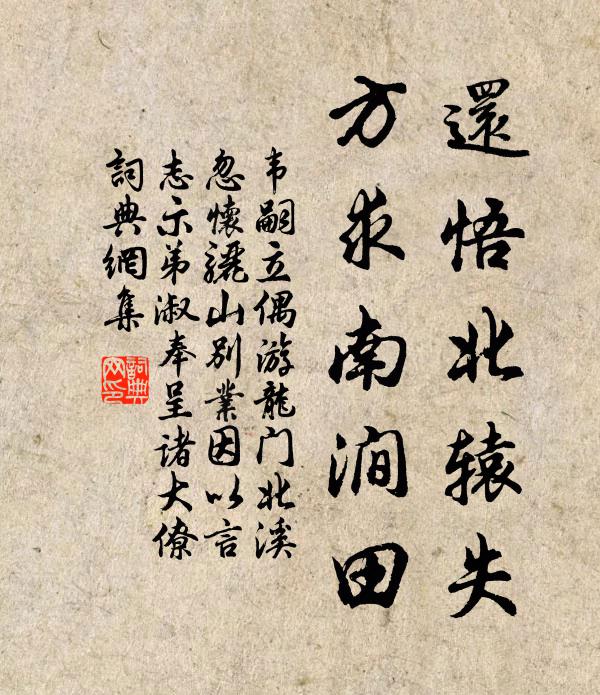 還悟北辕失
方求南涧田
韦嗣立偶游龍门北溪
忽懷驪山别業因以言
志示弟淑奉呈諸大僚
詞典網集
詞典
网印